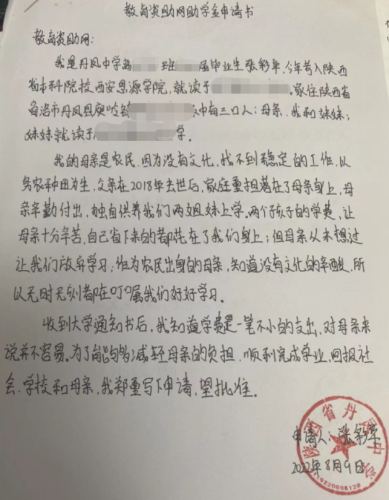 教育资助网助学金申请书
教育资助网:
我是丹凤中学高 班 届毕业生张彩草,今年考入陕西
省本科院校西安思源学院,就读于 。家住陕西省
商洛市丹凤县庾岭镇 家中有三口人:母亲、我和妹妹,
妹妹就读于 学。
我的母亲是农民,因为没有文化,找不到稳定的工作,以
务农种田为生,父亲在2018年去世后,家庭重担落在了母亲身上,母
亲辛勤付出,独自供养我们两姐妹上学。两个孩子的学费,让
母亲十分辛苦,自己省下来的都花在了我们身上;但母亲从未想过
让我们放弃学习;作为农民出身的母亲,知道没有文化的辛酸,所
以无时无刻都在叮嘱我们好好学习。
收到大学通知书后,我知道学费是一笔不小的支出,对母亲来
说并不容易。为了能够减轻母亲的负担,顺利完成学业,回报社
会、学校和母亲,我郑重写下申请,望批准。
申请人:张彩
2022年8月9日
陕西省丹 中学